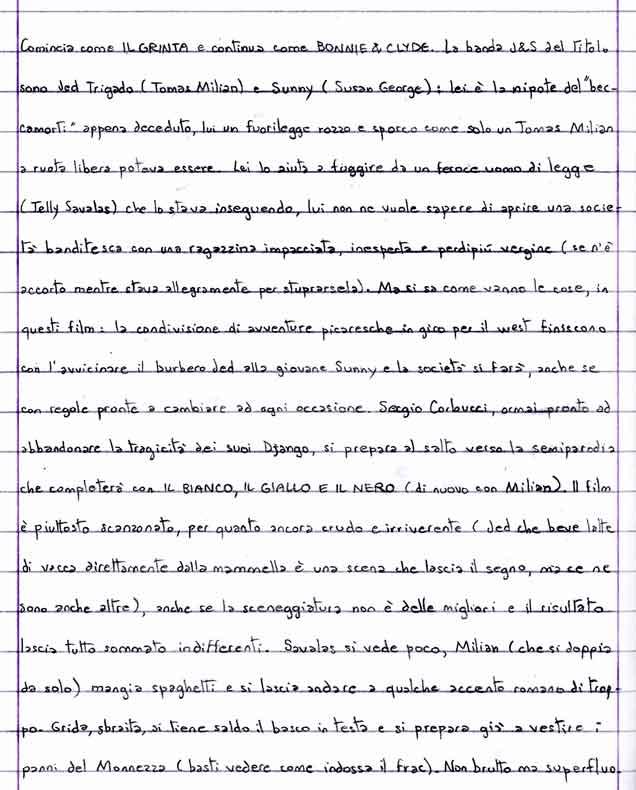 Comincia come IL GRINTA e continua come BONNIE & CLYDE. La banda J&S del titolo
sono Jed Trigado (Tomas Milian) e Sunny (Susan George): lei è la nipote del "bec-
camorti" appena deceduto, lui un fuorilegge rozzo e sporco come solo un Tomas Milian
a ruota libera poteva essere. Lei lo aiuta a fuggire da un feroce uomo di legge
(Telly Savalas) che lo stava inseguendo, lui non ne vuole sapere di aprire una socie-
tà banditesca con una ragazzina impacciata, inesperta e perdipiù vergine (se n'è
accorto mentre stava allegramente per stuprarsela). Ma si sa come vanno le cose, in
questi film: la condivisione di avventure picaresche in giro per il west finiscono
con l'avvicinare il burbero Jed alla giovane Sunny e la società si farà, anche se
con regole pronte a cambiare ad ogni occasione. Sergio Corbucci, ormai pronto ad
abbandonare la tragicità dei suoi Django, si prepara al salto verso la semiparodia
che completerà con IL BIANCO, IL GIALLO E IL NERO (di nuovo con Milian). Il film
è piuttosto scanzonato, per quanto ancora crudo e irriverente (Jed che beve latte
di vacca direttamente dalla mammella è una scena che lascia il segno, ma ce ne
sono anche altre), anche se la sceneggiatura non è delle migliori e il risultato
lascia tutto sommato indifferenti. Savalas si vede poco, Milian (che si doppia
da solo) mangia spaghetti e si lascia andare a qualche accento romano di trop-
po. Grida, sbraita, si tiene saldo il basco in testa e si prepara già a vestire i
panni del Monnezza (basti vedere come indossa il frac). Non brutto ma superfluo.